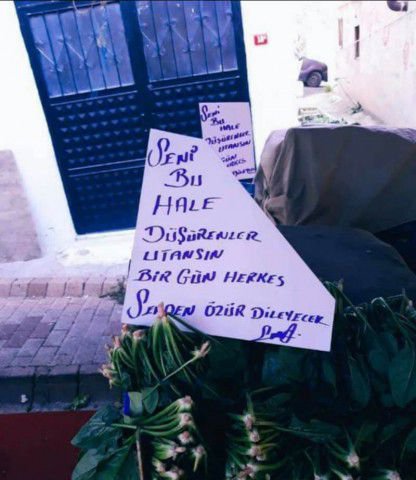 SENİ
BU
HALE
DÜŞÜRENLER
UTANSIN
BİR GÜN HERKES
SENDEN ÖZÜR DİLEYECEK
SENİ
BU
HALE
DÜŞÜRENLER
UTANSIN
GÜN
HERKES